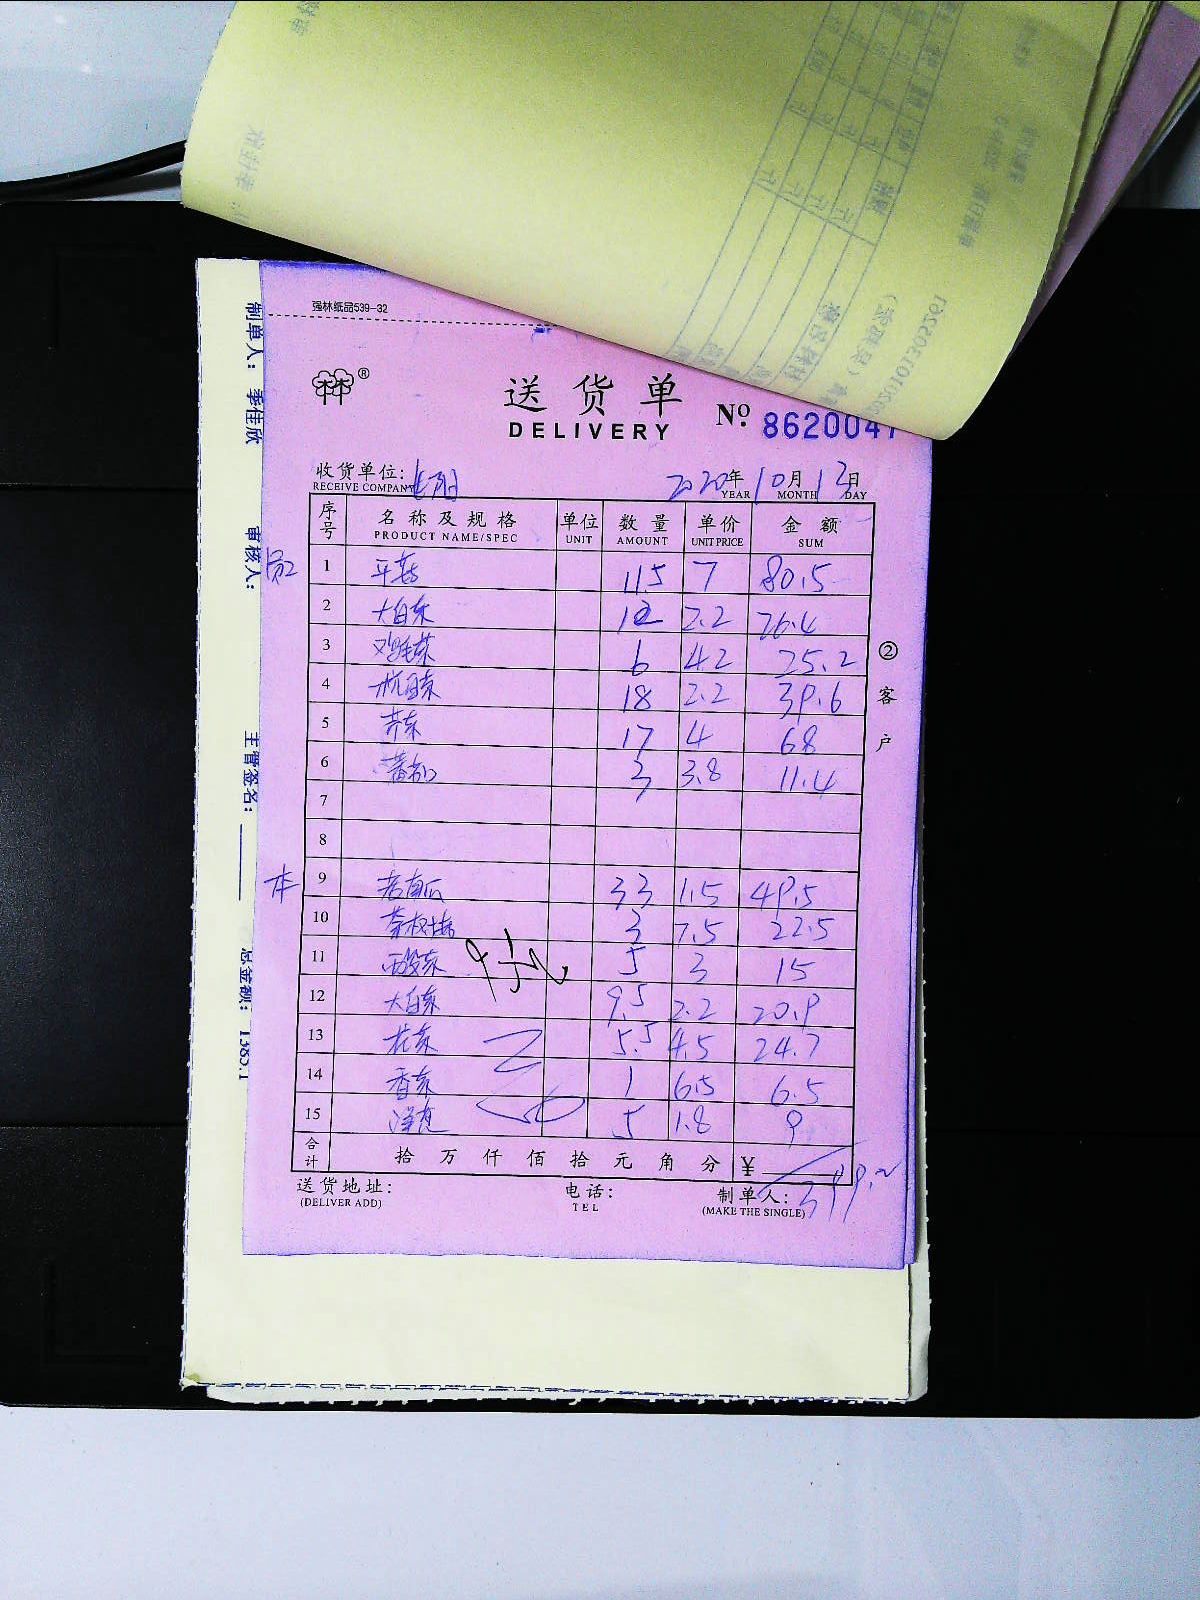 强林纸品539-32
林®
送货单
DELIVERY
No. 8620047
收货单位:
RECEIVE COMPANY
2020年10月12日
YEAR MONTH DAY
序号 名称及规格 单位 数量 单价 金额
PRODUCT NAME/SPEC UNIT AMOUNT UNIT PRICE SUM
1 平菇 11.5 7 80.5
2 大白菜 12 2.2 26.4
3 鸡毛菜 6 4.2 25.2
4 杭白菜 18 2.2 39.6
5 芹菜 17 4 68
6 蕃茄 3 3.8 11.4
7
8
本 9 老南瓜 33 1.5 49.5
10 茶树菇 3 7.5 22.5
11 酸菜 5 3 15
12 大白菜 9.5 2.2 20.9
13 花菜 5.5 4.5 24.7
14 香菜 1 6.5 6.5
15 洋葱 5 1.8 9
合计 拾万仟佰拾元角分 ¥ 399.2
送货地址: 电话: 制单人:
(DELIVER ADD) TEL (MAKE THE SINGLE)
②客户
制单人: 季佳欣
审核人:
主管签名:
总金额: 1385.1